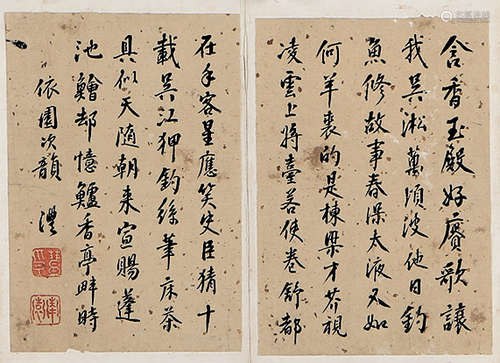 含香玉殿好賡歌讓
我吳淞萬頃波他日釣
魚修故事春深太液又如
何羊裘的是棟梁才莽視
凌雲上將臺善使卷舒都
在手客星應笑史臣猜十
載吳江狎釣絲筆床茶
具似天隨朝來宣賜蓬
池鱠却憶鱸香亭畔時
依園次韻 澧